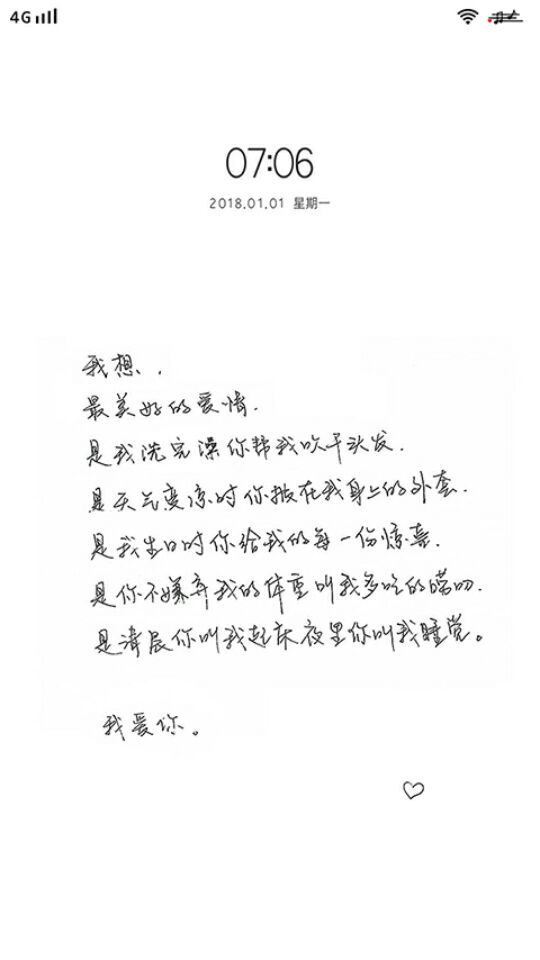 4G
07:06
2018.01.01 星期一
我想..
最美好的爱情.
是我洗完澡你帮我吹干头发.
是天气变凉时你披在我身上的外套.
是我生日时你给我的每一份惊喜.
是你不嫌弃我的体重叫我多吃的唠叨.
是清晨你叫我起床夜里你叫我睡觉。
我爱你。